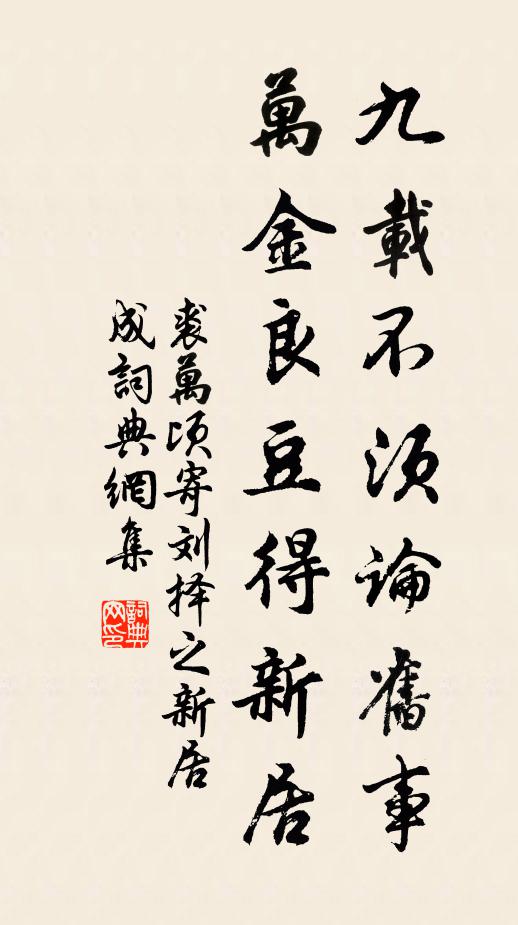 九載不須論舊事
萬金良豆得新居
裘萬頃寄刘择之新居
成詞典網集
詞典
网印